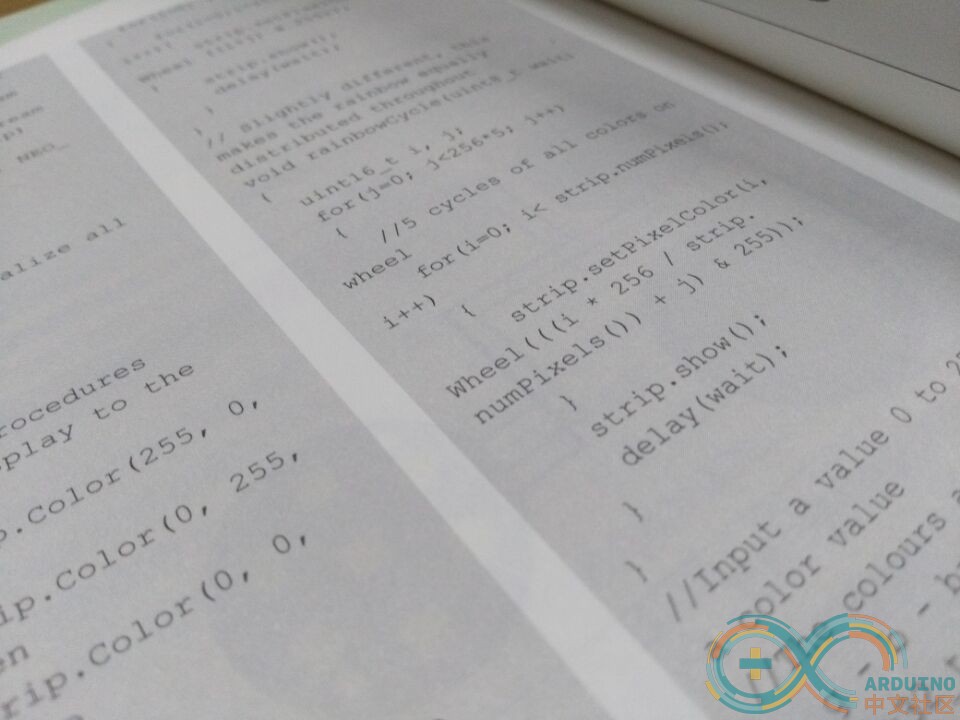 alize all
rocedures
play to the
p.Color(255, 0,
ip.Color(0, 255,
rip.Color(0, 0,
strip.show();
delay(wait);
}
}
// Slightly different, this
makes the rainbow equally
distributed throughout
void rainbowCycle(uint8_t wait)
{ uint16_t i, j;
for(j=0; j<256*5; j++)
{ //5 cycles of all colors on
wheel
for(i=0; i< strip.numPixels();
i++)
{ strip.setPixelColor(i,
Wheel(((i * 256 / strip.
numPixels()) + j) & 255));
}
strip.show();
delay(wait);
}
}
//Input a value 0 to
color value
colours
ARDUINO
中文社区